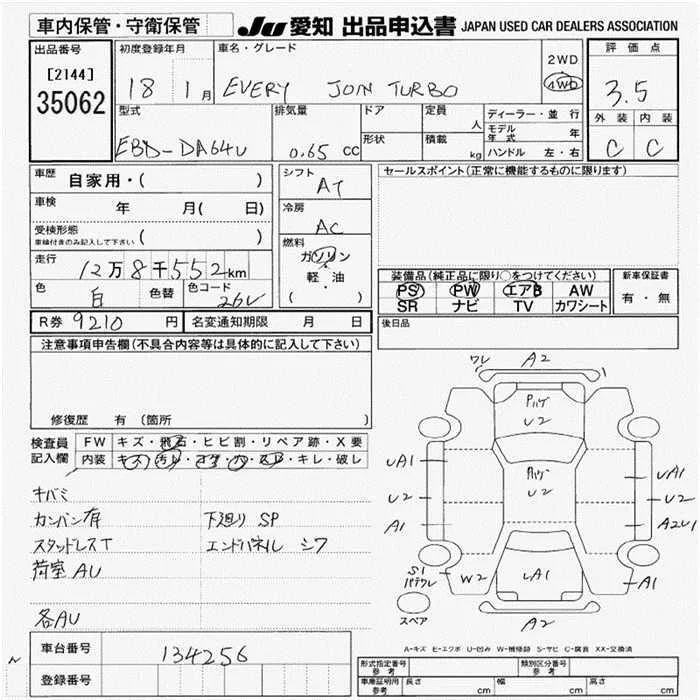 車内保管・守衛保管
JU 愛知 出品申込書 JAPAN USED CAR DEALERS ASSOCIATION
出品番号
[2144]
35062
初度登録年月
18 1月
車名・グレード
EVERY JOIN TURBO
2WD
4WD
評価点
3.5
外装 内装
C C
型式
EBD-DA64V
排気量
0.65 cc
ドア
形状
定員
人
積載
kg
ディーラー・並行
モデル年式 年
ハンドル 左・右
車歴 自家用・( )
車検 年 月( 日)
受検形態
車検付きのみ記入して下さい ( )
走行 12万8千552km
色 白 色替 色コード 26U
シフト
AT
冷房
AC
燃料
ガソリン
・
軽・油
( )
セールスポイント(正常に機能するものに限ります)
装備品(純正品に限り○をつけてください)
PS PW エアB AW
SR ナビ TV カワシート
新車保証書
有・無
R券 9210 円 名変通知期限 月 日
後日品
注意事項申告欄(不具合内容等は具体的に記入して下さい)
修復歴 有 (箇所 )
検査員
記入欄
FW キズ・飛石・ヒビ割・リペア跡・X要
内装 キズ・汚レ・コゲ・穴・スレ・キレ・破レ
キバミ
カンバン有 下廻り SP
スタッドレスT エンドパネル シワ
荷室 AU
各AU
ワレ A2
U2
UA1
U2
A1
U2
UA1
U2
A2U1
S1
W2
UA1
A1
スペア
A2
A-キズ E-エクボ U-凹み W-補修跡 S-サビ C-腐食 XX-交換済
車台番号 134256
登録番号
型式指定番号
参考
類別区分番号
参考
車庫証明用
参考
長さ cm 幅 cm 高さ cm